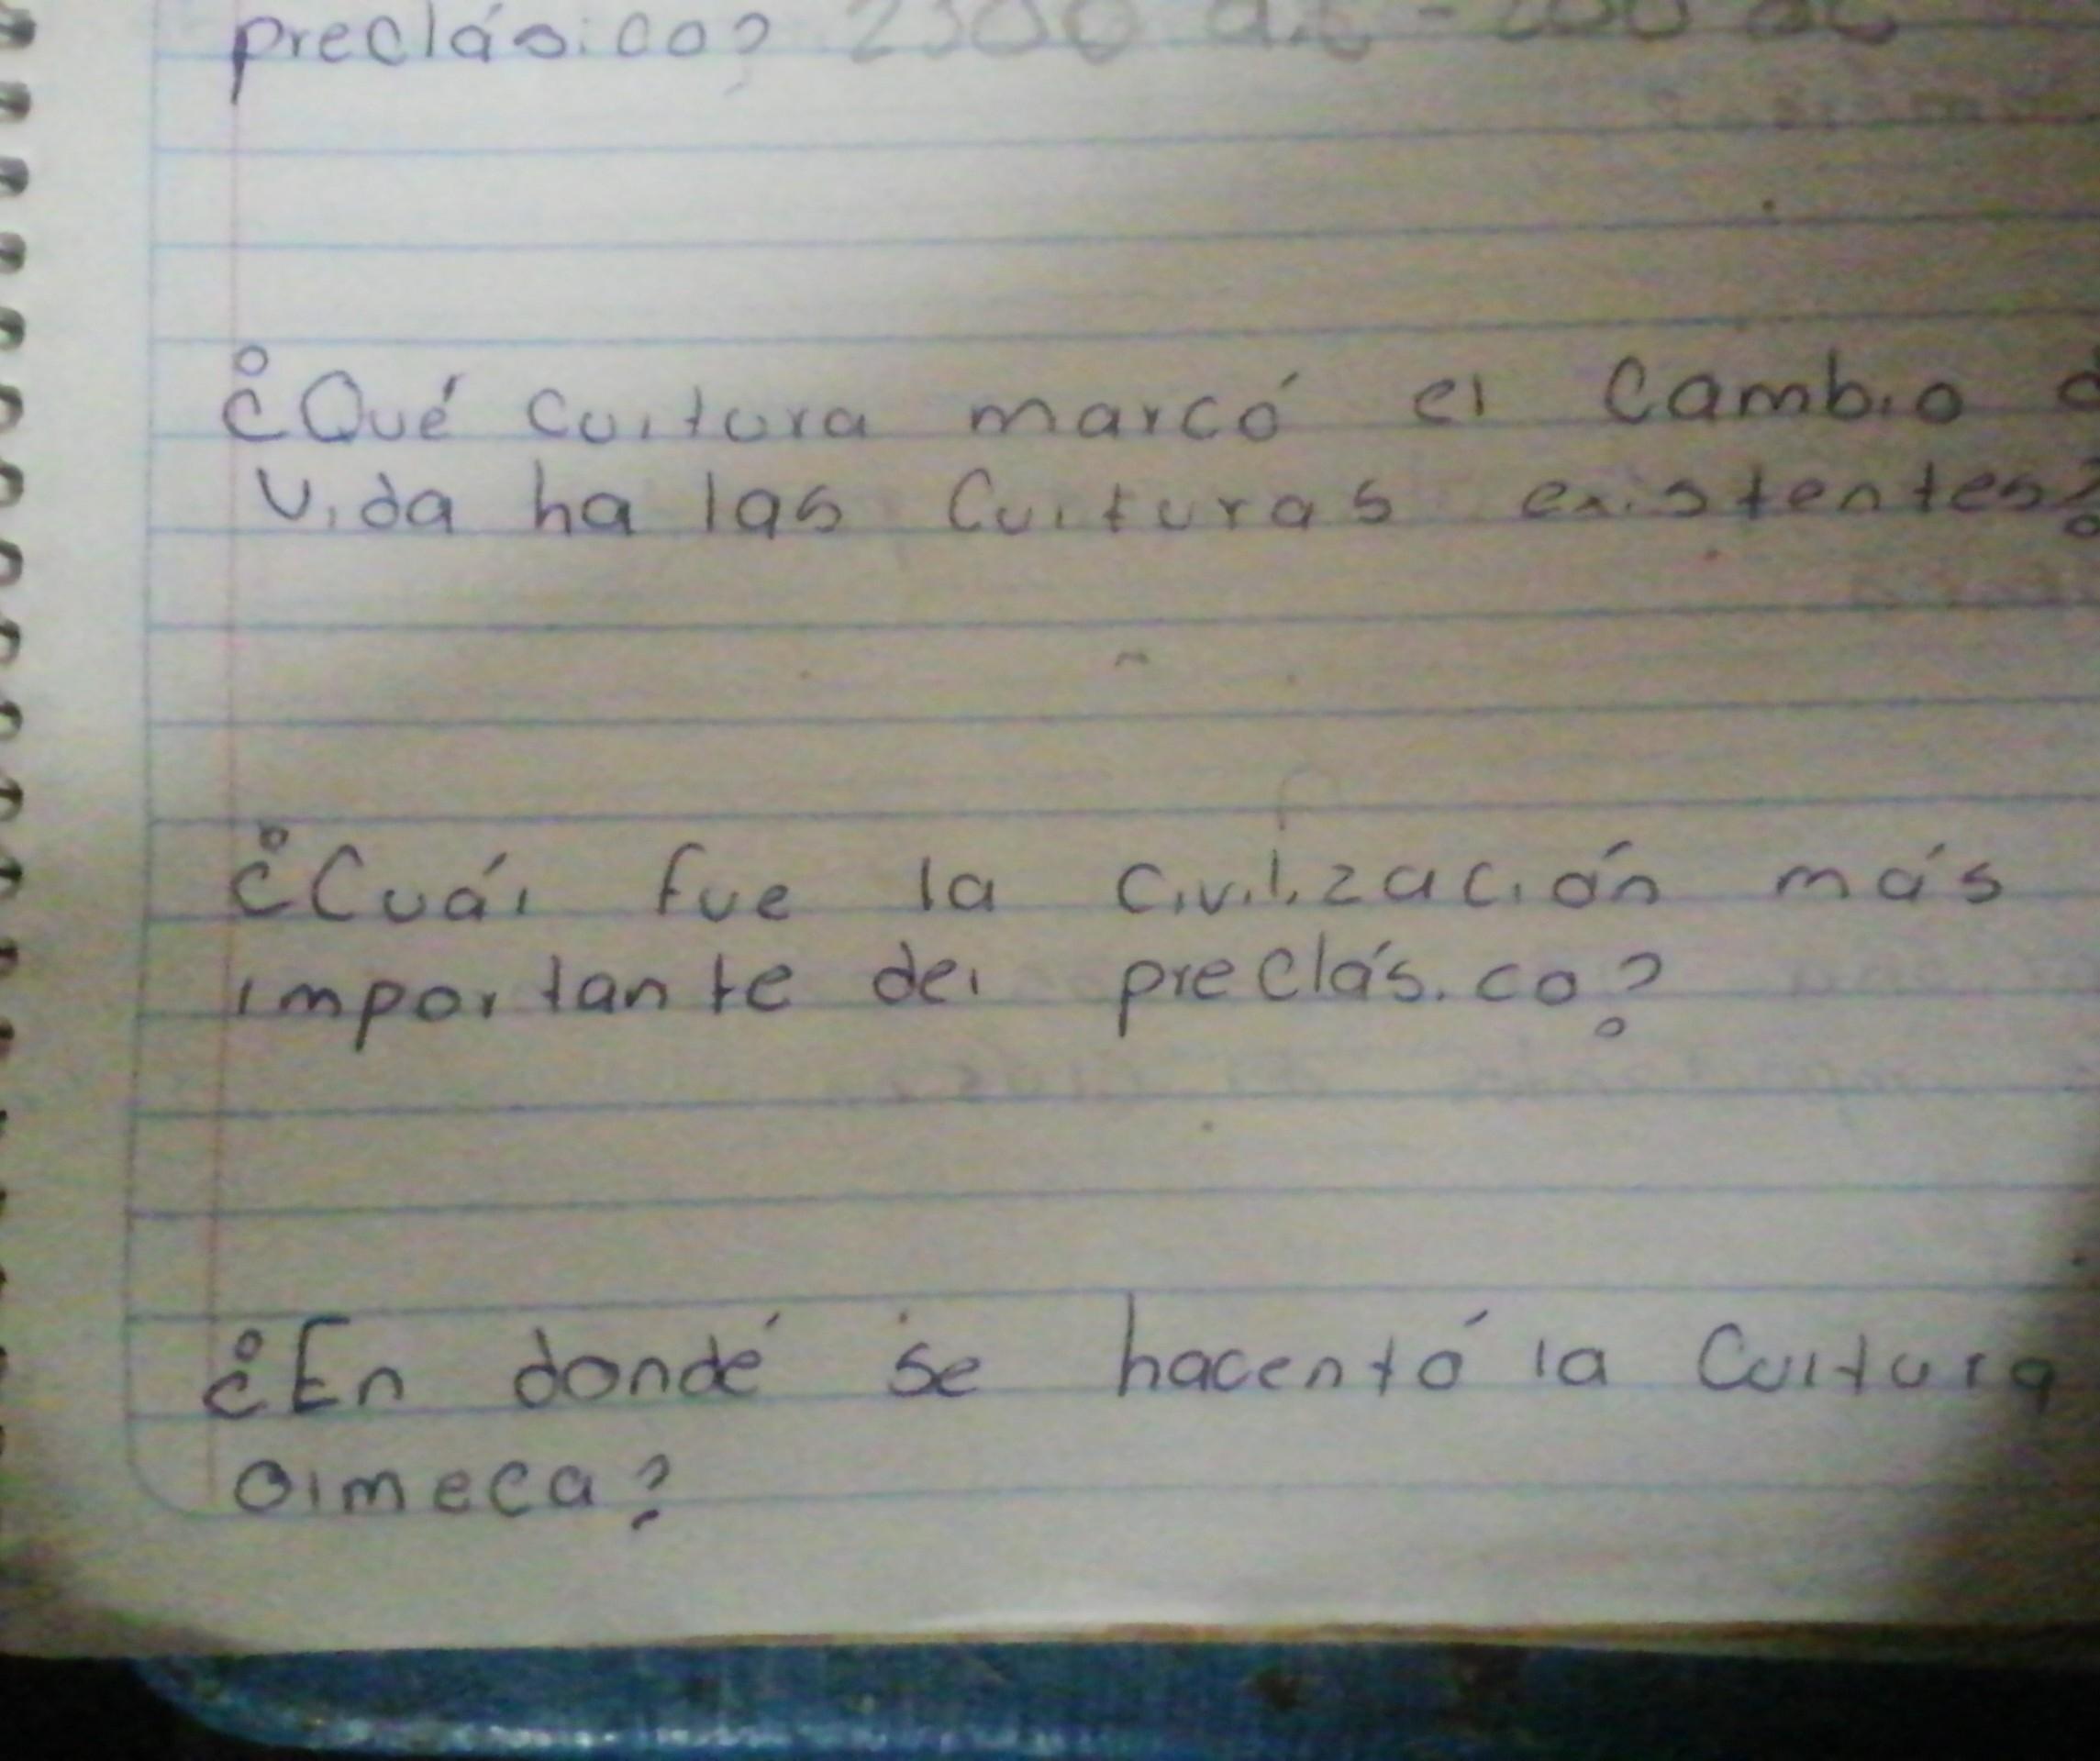 preclásico? 2500 a.c - 200 dc
¿Qué cultura marcó el cambio
vida ha las culturas existentes?
¿Cuál fue la civilización más
importante del preclásico?
¿En dondé se hacentó la cultura
olmeca?